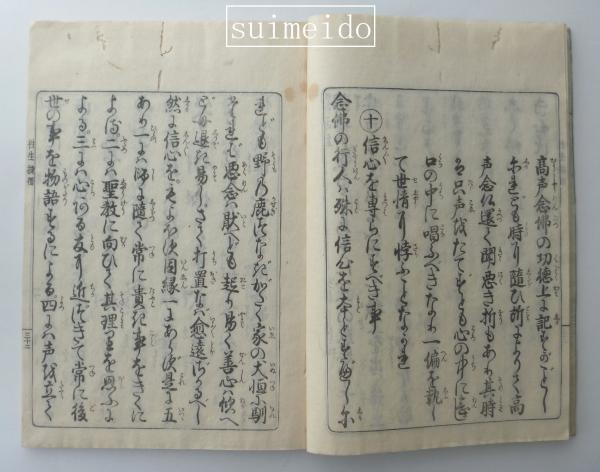 suimeido
高声念佛の功徳上に記すがごとし
されども時に隨ひ所によりて高
声念仏還て聞悪き折もあれ其時
は只声をたてずとも心の中に
口の中に唱ふべきなり一偏を執し
て世情に悖ふことなかれ
十 信心を専らにすべき事
念佛の行人は殊に信心を本とすべし
ども野の鹿はつなぎがたく家の犬恒に馴
悪念は厭へども起り易く善心は欣へ
ども退き易し打置なば愈遠ざかるべし
然に信心を因縁一にあらず是に五
あり一には師に隨て常に貴き事をきくに
よる二には聖教に向ひて其理を思ふに
よる三には心ある友に近づきて常に後
世の事を物語するによる四には声を立て
往生捷径
三十二